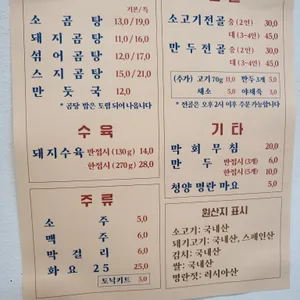 기본/특
소 곰 탕 13,0 / 19,0
돼 지 곰 탕 11,0 / 16,0
섞 어 곰 탕 12,0 / 17,0
스 지 곰 탕 15,0 / 21,0
만 둣 국 12,0
* 곰탕 밥은 토렴 되어 나옵니다
수 육
돼지수육 반접시 (130g) 14,0
한접시 (270g) 28,0
주 류
소 주 5,0
맥 주 5,0
막 걸 리 6,0
화 요 2 5 25,0
토닉키트 5,0
소고기전골 중 (2인) 30,0
대 (3~4인) 45,0
만 두 전 골 중 (2인) 30,0
대 (3~4인) 45,0
(추가) 고기 70g 11,0 만두 3개 5,0
채소 5,0 야채죽 3,0
* 전골은 오후 2시 이후 주문가능합니다
기 타
막 회 무 침 20,0
만 두 반접시 (3개) 6,0
한접시 (5개) 10,0
청양 명란 마요 5,0
원산지 표시
소고기: 국내산
돼지고기: 국내산, 스페인산
김치: 국내산
쌀: 국내산
명란젓: 러시아산